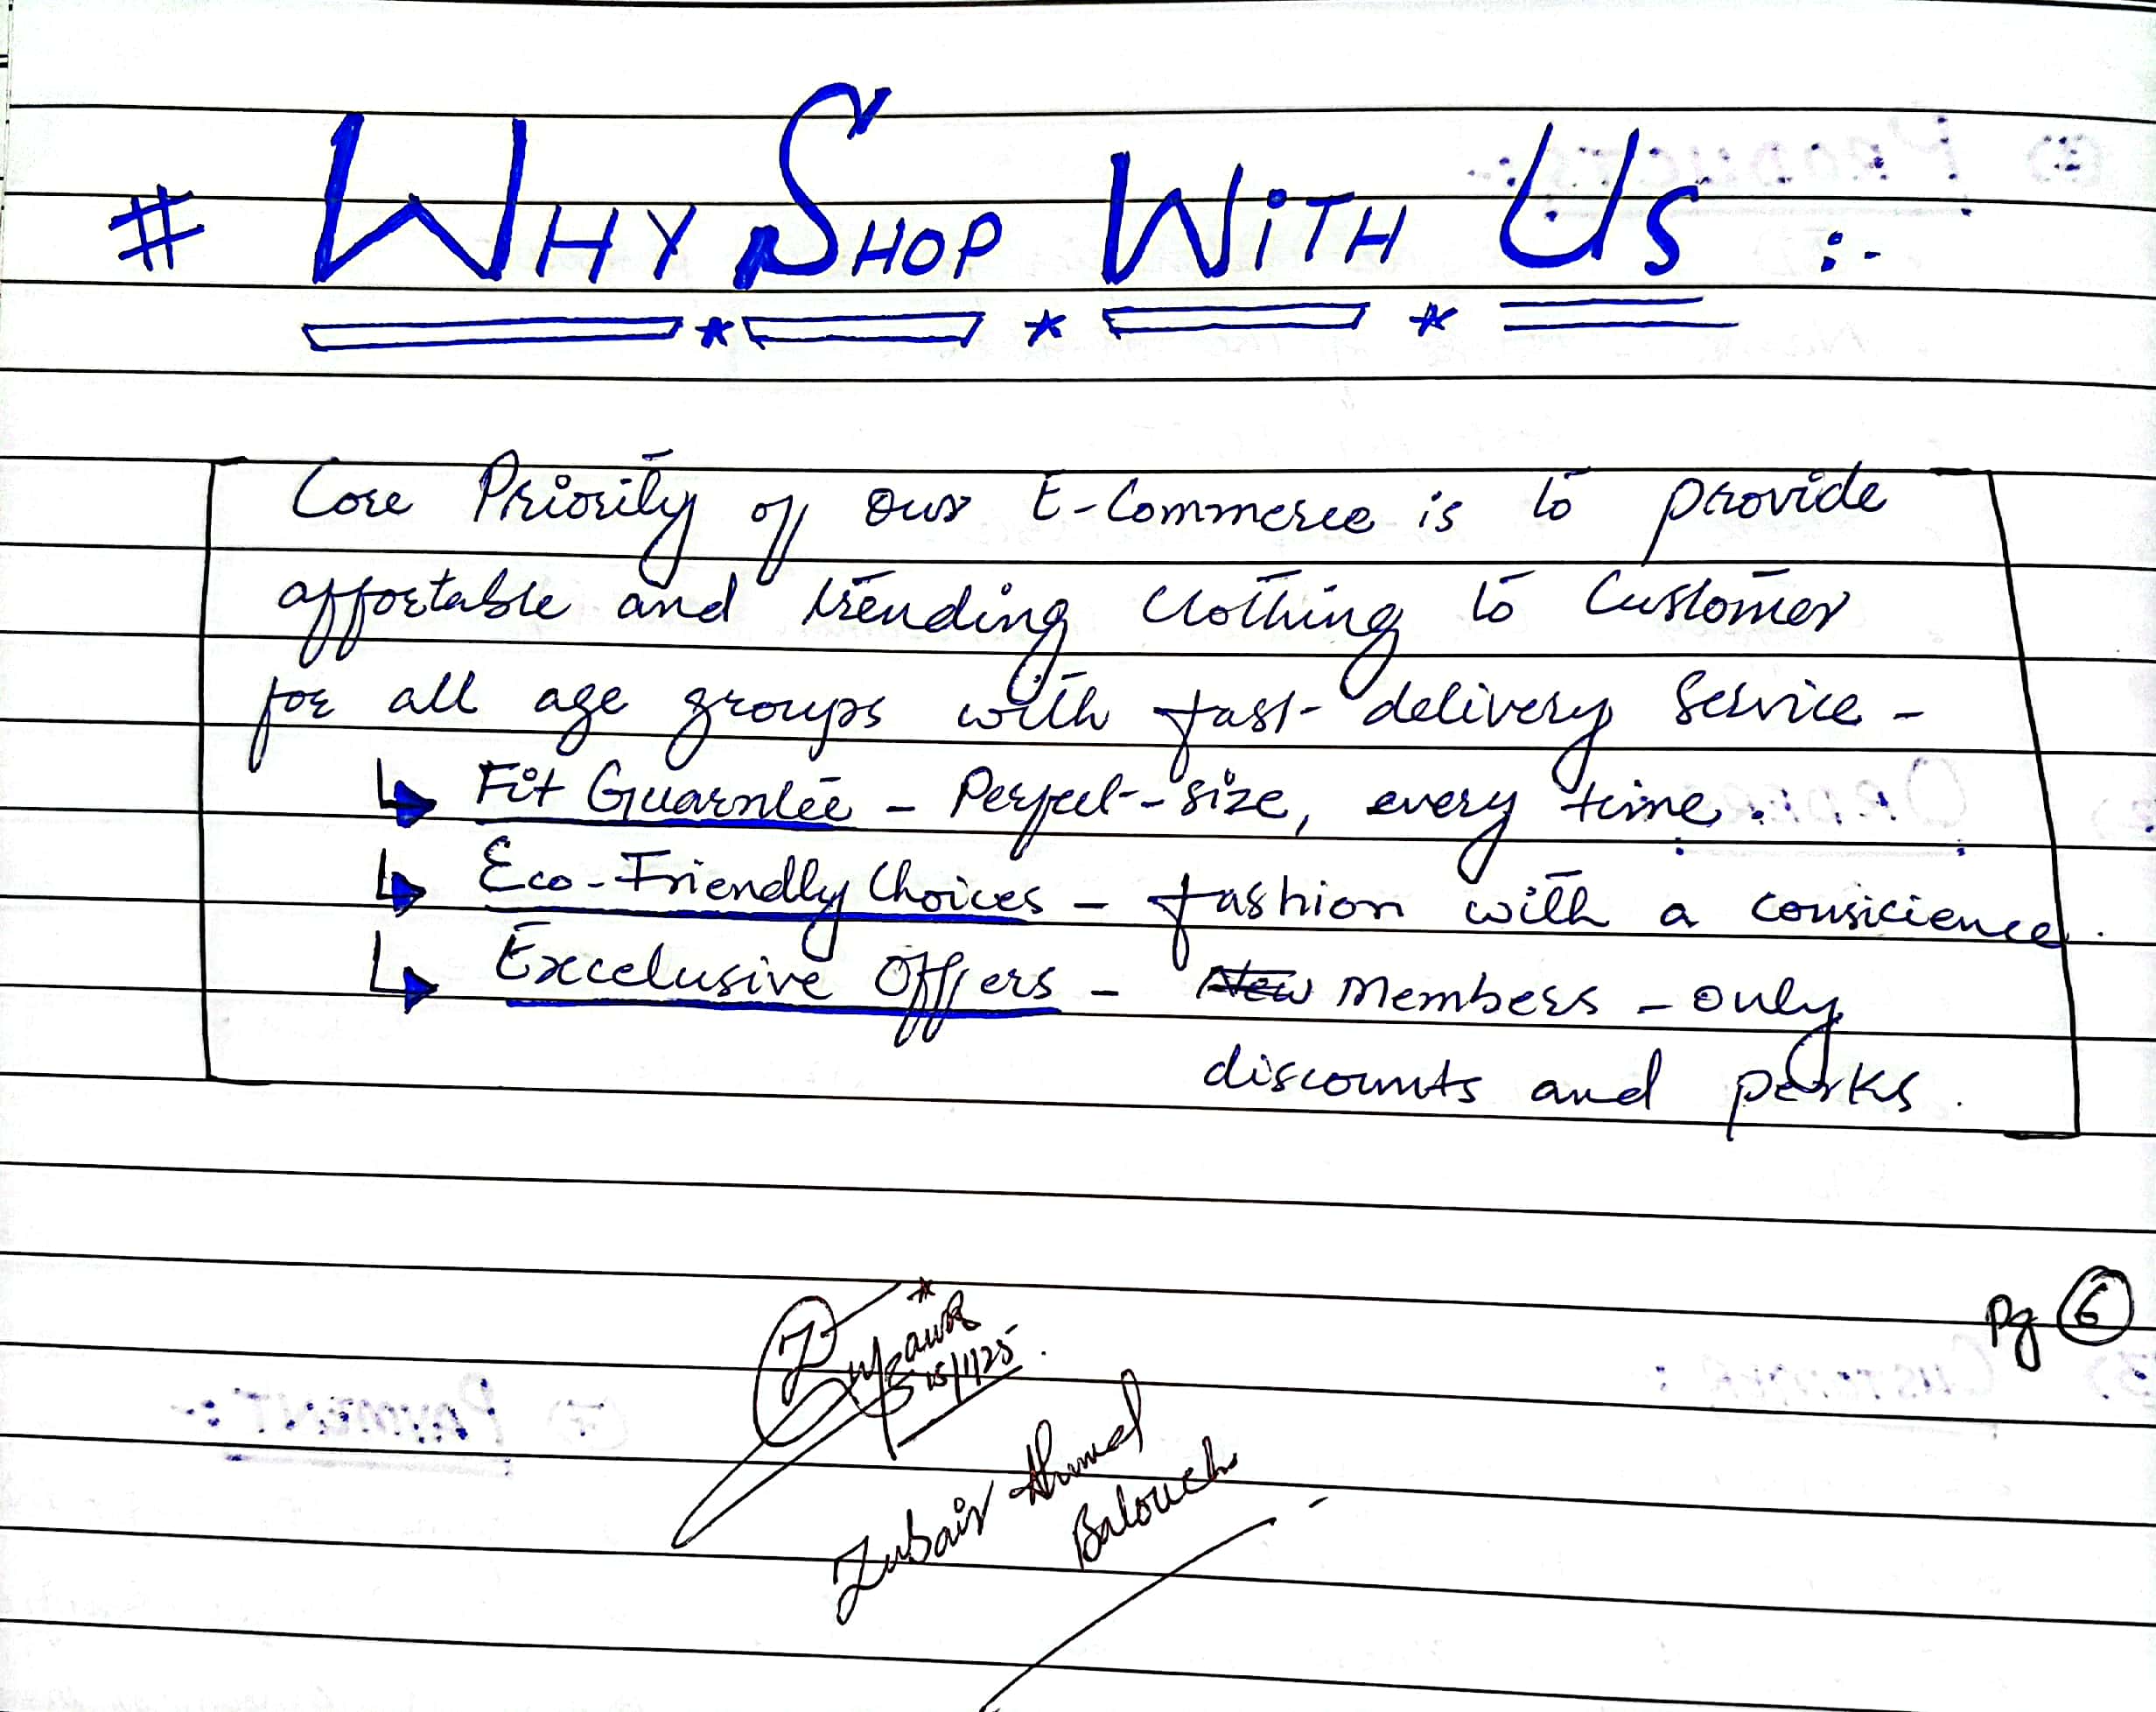 # WHY SHOP WITH US :-
Core Priority of our E-Commerce is to provide
affortable and trending clothing to Customer
for all age groups with fast delivery Service -
Fit Guarntee - Perfect-size, every time.
Eco-Friendly Choices - fashion with a consicience.
Excelusive Offers - New Members - only
discounts and perks.
Pg 6
15/1/25
Zubair Ahmed
Balouch